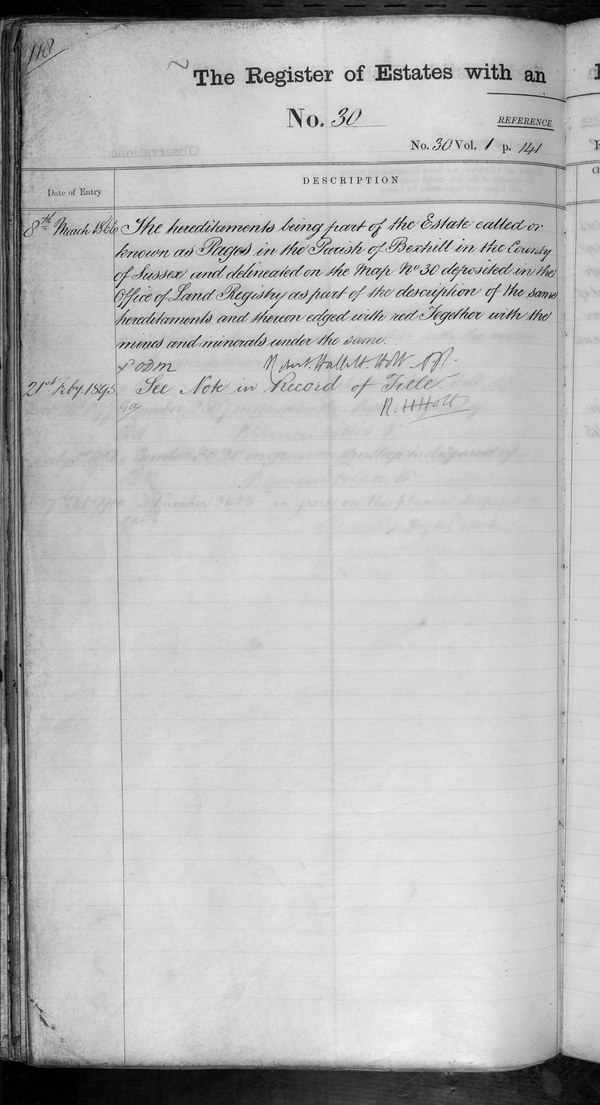 118
The Register of Estates with an
No. 30
REFERENCE.
No. 30 Vol. 1 p. 141
Date of Entry
DESCRIPTION
8th March 1866 The hereditaments being part of the Estate called or
known as Pages in the Parish of Bexhill in the County
of Sussex and delineated on the Map No 30 deposited in the
Office of Land Registry as part of the description of the same
hereditaments and thereon edged with red Together with the
mines and minerals under the same.
Robert Hallett Holt
21st Feby. 1895. See Note in Record of Title
R. H. Holt